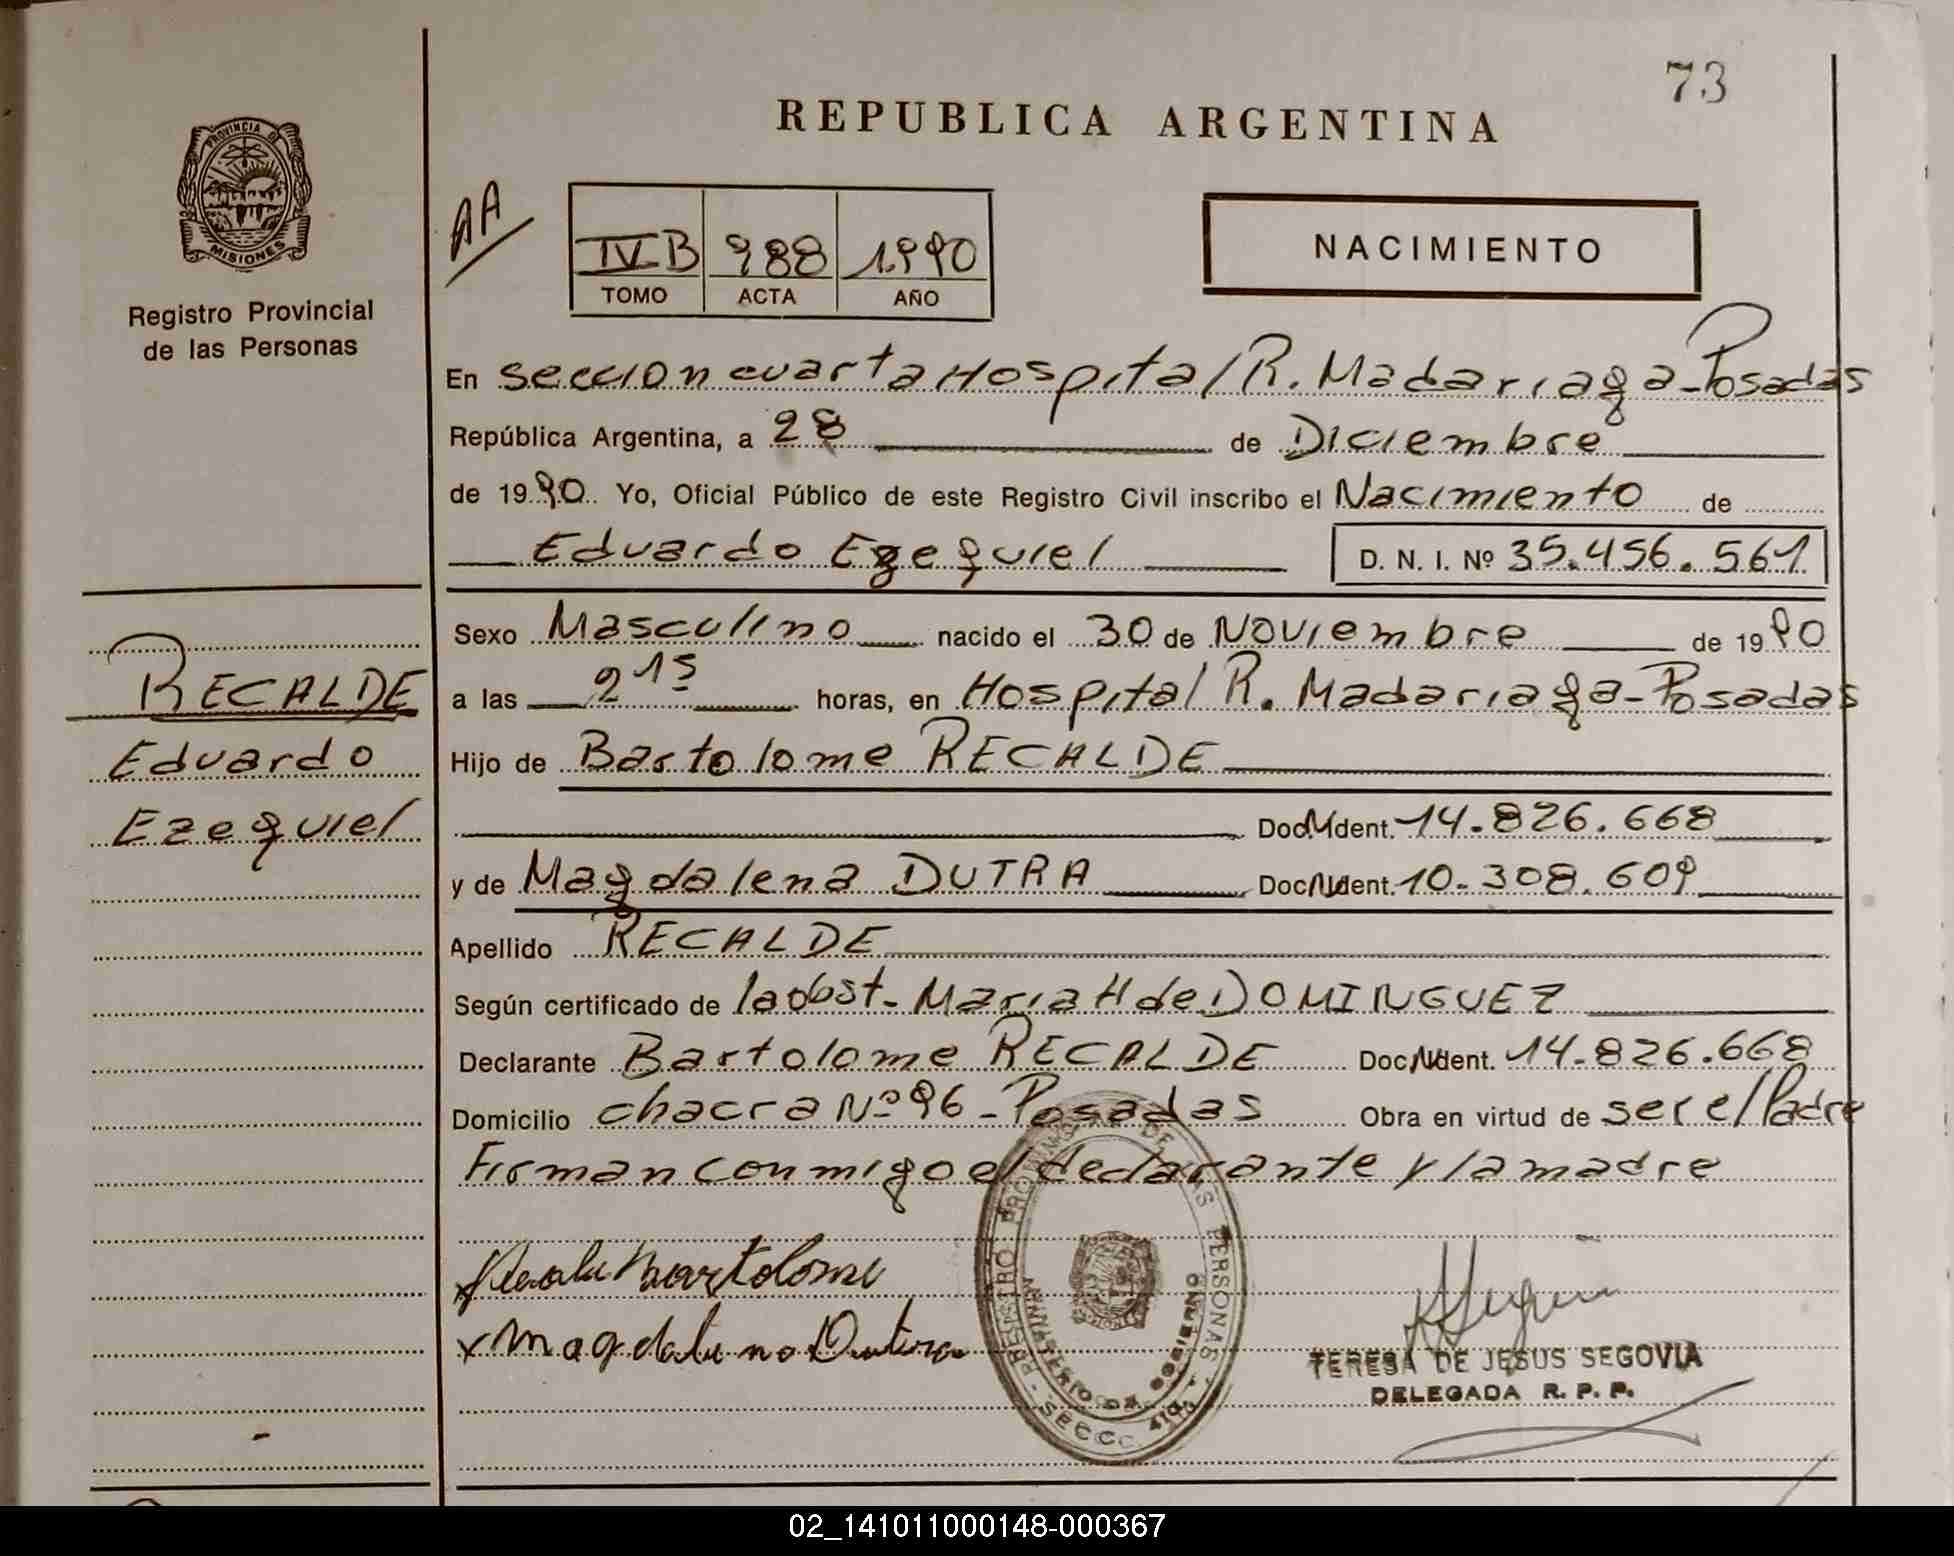 73
REPUBLICA ARGENTINA
PROVINCIA DE
MISIONES
Registro Provincial
de las Personas
AA
IV B 988 1990
TOMO ACTA AÑO
NACIMIENTO
En Seccion cuarta Hospital R. Madariaga-Posadas
República Argentina, a 28 de Diciembre
de 1990. Yo, Oficial Público de este Registro Civil inscribo el Nacimiento de
Eduardo Ezequiel D. N. I. Nº 35.456.561
Sexo Masculino nacido el 30 de Noviembre de 1990
a las 21 15 horas, en Hospital R. Madariaga-Posadas
Hijo de Bartolome RECALDE
Doc. Ident. 14.826.668
y de Magdalena DUTRA Doc. Ident. 10.308.609
Apellido RECALDE
Según certificado de la obst. Maria H de DOMINGUEZ
Declarante Bartolome RECALDE Doc. Ident. 14.826.668
Domicilio chacra Nº 96-Posadas Obra en virtud de ser el Padre
Firman conmigo el declarante y la madre
RECALDE
Eduardo
Ezequiel
Bartolome
x Magdalena Dutra
REGISTRO PROVINCIAL DE LAS PERSONAS
MINISTERIO DE GOBIERNO
SECC. 4ta
TERESA DE JESUS SEGOVIA
DELEGADA R. P. P.
02_141011000148-000367